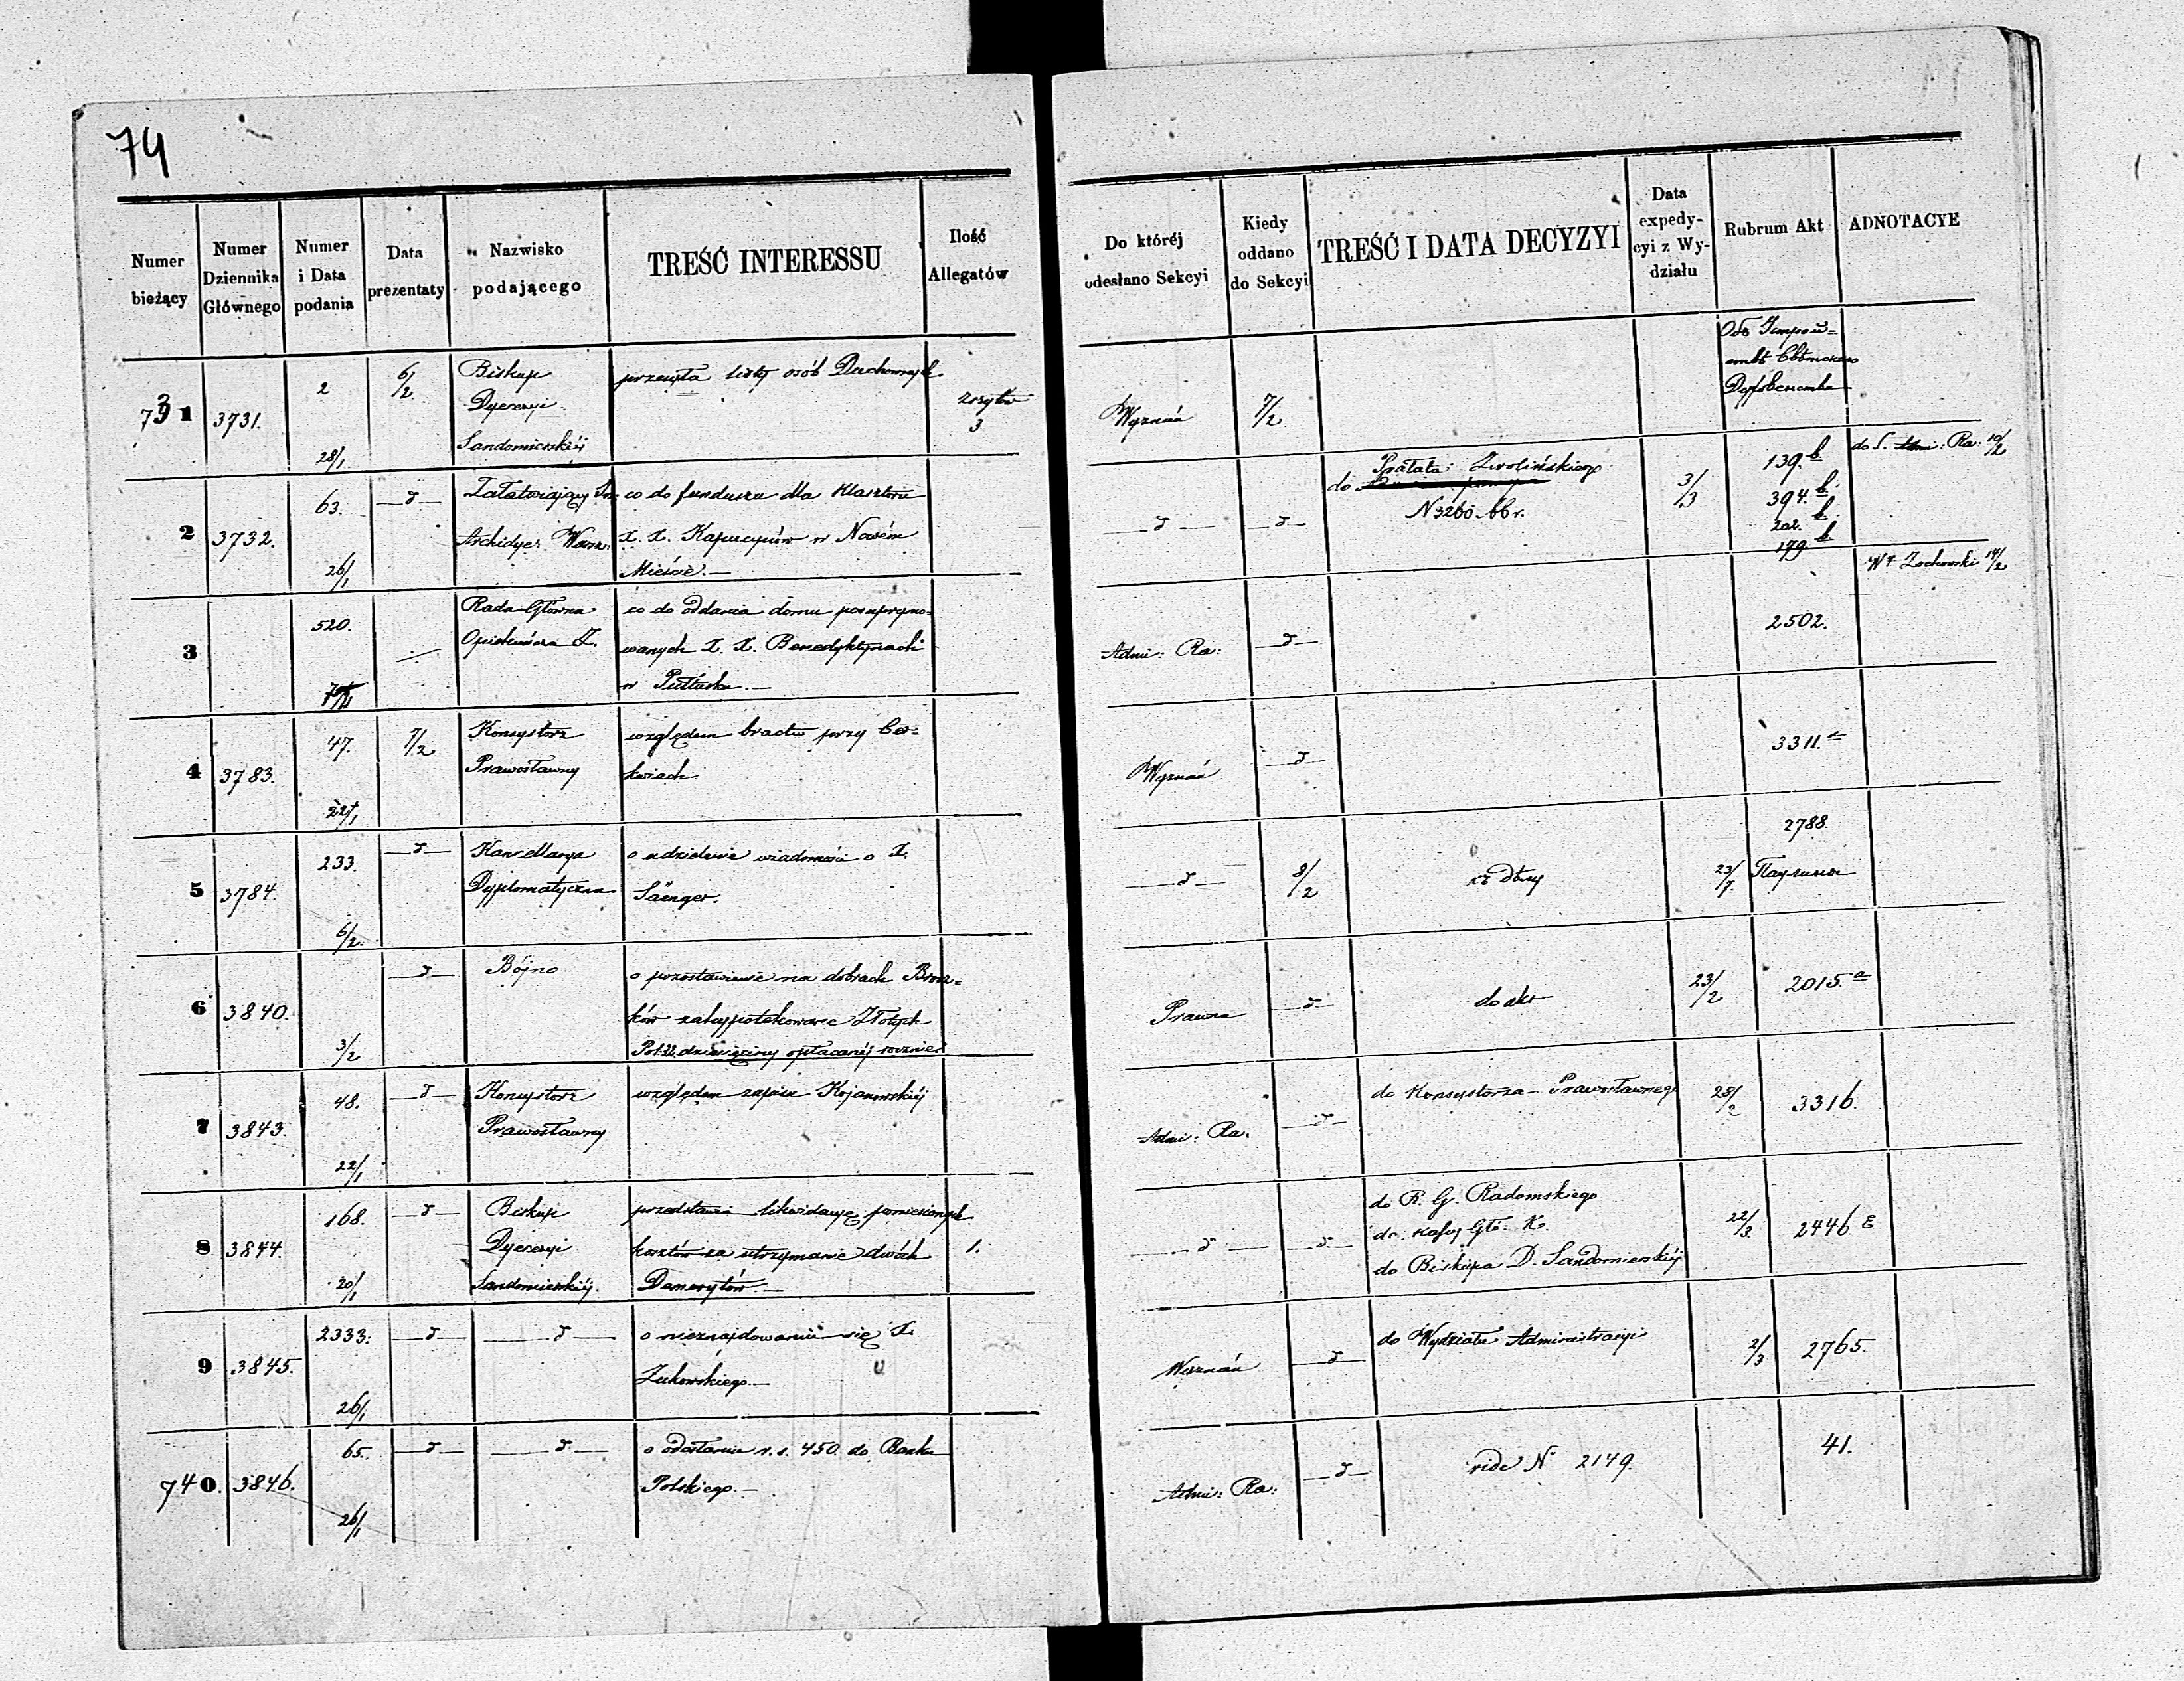 74
Numer bieżący
Numer Dziennika Głównego
Numer i Data podania
Data prezentaty
Nazwisko podającego
TREŚĆ INTERESSU
Ilość Allegatów
Do któréj odesłano Sekcyi
Kiedy oddano do Sekcyi
TREŚĆ I DATA DECYZYI
Data expedy-cyi z Wy-działu
Rubrum Akt
ADNOTACYE
731 3731. 2 28/1 6/2
Biskup
Dyecezyi
Sandomierskiéj
przesyła listy osób Duchownych
3
Wyznań 7/2
2 3732. 63. 26/1 —d—
Załatwiający
Archidye: Warsz:
co do funduszu dla Klasztoru
X. X. Kapucynów w Nowém
Mieście.—
—d— —d—
do
Prałata Zwolińskiego
N 3260
3/3
139. b
394. b
202. b
179 b
do S. Ra. 10/2
3 520.
Rada Główna
Opiekuńcza Z.
co do oddania domu
wanych X. X. Benedyktynach
w Pułtusku.—
Admi: Ra: —d—
2502.
Żochowski 14/2
4 3783. 47. 7/2
Konsystorz
Prawosławny
względem bractw przy Cer=
kwiach.
Wyznań —d—
3311.
5 3784. 233. 6/2. —d—
Kancellarya
Dyplomatyczna
o udzielenie wiadomości o X.
Säenger.
—d— 8/2
2788.
6 3840. 3/2 —d—
Bójno
o pozostawienie na dobrach
ków zahypotekowane Złotych
dziesięciny opłacanéj rocznie
Prawna —d—
do akt
23/2
2015. a
7 3843. 48. 22/1 —d—
Konsystorz
Prawosławny
względem zapisu Kojanowskiéj
Admi: Ra. —d—
do Konsystorza Prawosławnego
28/2
3316.
8 3844. 168. 20/1 —d—
Biskup
Dyecezyi
Sandomierskiéj.
przedstawia likwidacyę poniesionych
kosztów za utrzymanie dwóch
Demerytów.—
1.
—d— —d—
do R. G. Radomskiego
do Kassy Głó: K.
do Biskupa D. Sandomierskiéj
22/3.
2446
9 3845. 2333. 26/1 —d— —d—
o nieznajdowaniu się X.
Żukowskiego.—
Wyznań —d—
do Wydziału Administracyi
2/3
2765.
740. 3846. 65. 26/1 —d— —d—
o odesłaniu r. s. 450. do Banku
Polskiego.—
Admi: Ra: —d—
vide N 2149.
41.